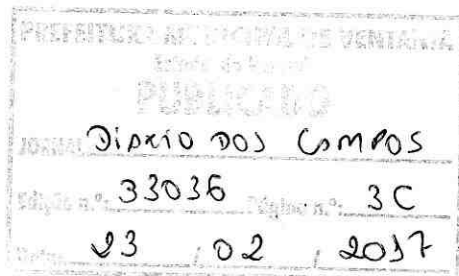 PREFEITURA MUNICIPAL DE VENTANIA
Estado do Paraná
PUBLICADO
JORNAL DIÁRIO DOS CAMPOS
Edição n.º: 33036 Página n.º: 3C
23 / 02 / 2017